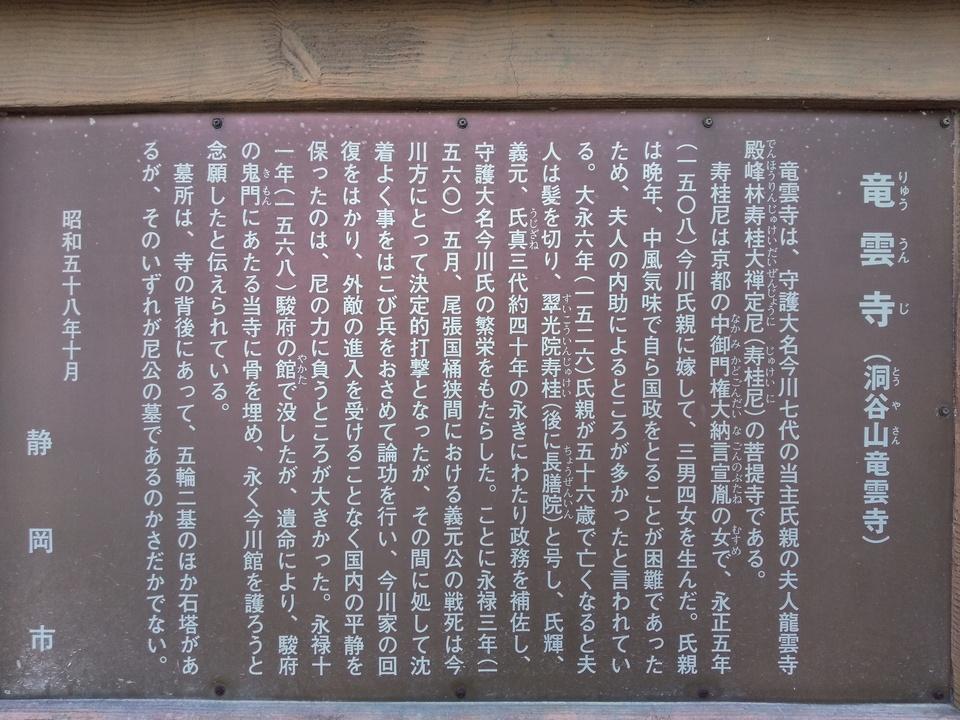 竜雲寺（洞谷山竜雲寺）
竜雲寺は、守護大名今川七代の当主氏親の夫人龍雲寺
殿峰林寿桂大禅定尼（寿桂尼）の菩提寺である。
寿桂尼は京都の中御門権大納言宣胤の女で、永正五年
（一五〇八）今川氏親に嫁して、三男四女を生んだ。氏親
は晩年、中風気味で自ら国政をとることが困難であった
ため、夫人の内助によるところが多かったと言われてい
る。大永六年（一五二六）氏親が五十六歳で亡くなると夫
人は髪を切り、翠光院寿桂（後に長膳院）と号し、氏輝、
義元、氏真三代約四十年の永きにわたり政務を補佐し、
守護大名今川氏の繁栄をもたらした。ことに永禄三年（一
五六〇）五月、尾張国桶狭間における義元公の戦死は今
川方にとって決定的打撃となったが、その間に処して沈
着よく事をはこび兵をおさめて論功を行い、今川家の回
復をはかり、外敵の進入を受けることなく国内の平静を
保ったのは、尼の力に負うところが大きかった。永禄十
一年（一五六八）駿府の館で没したが、遺命により、駿府
の鬼門にあたる当寺に骨を埋め、永く今川館を護ろうと
念願したと伝えられている。
墓所は、寺の背後にあって、五輪二基のほか石塔があ
るが、そのいずれが尼公の墓であるのかさだかでない。
昭和五十八年十月
静岡市